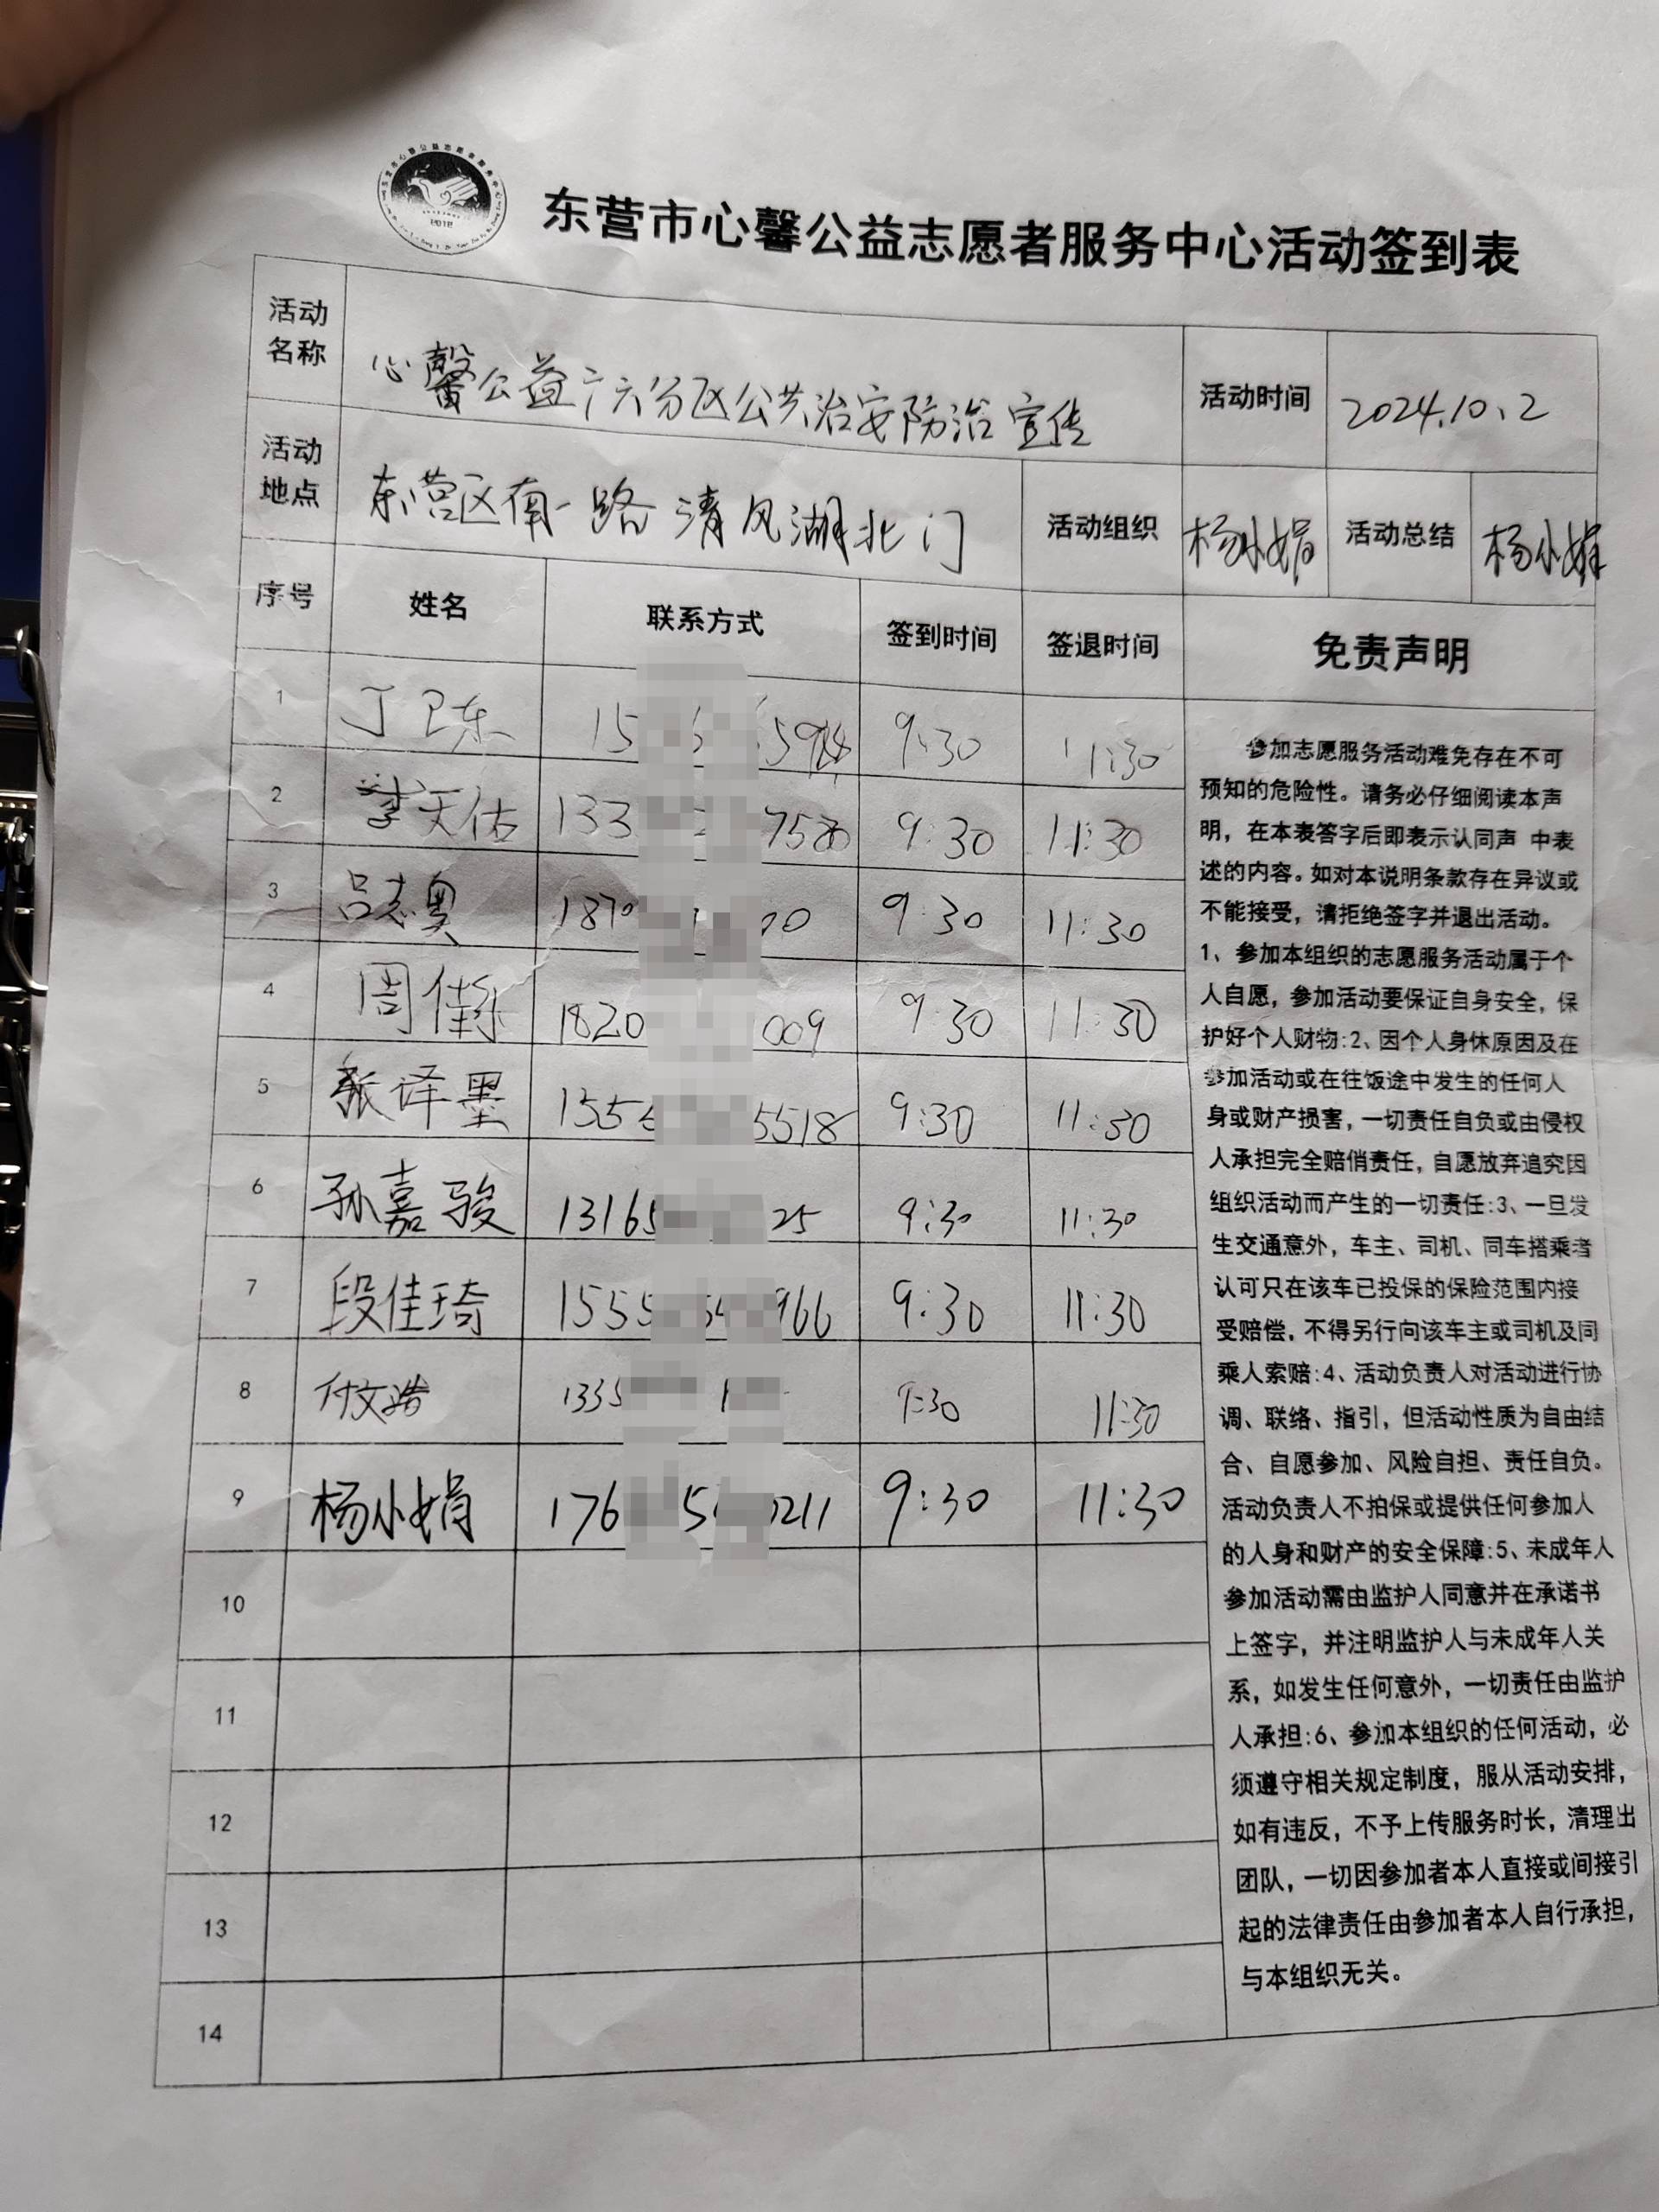 东营市心馨公益志愿者服务中心活动签到表
活动名称 心馨公益广六分区公共治安防治宣传 活动时间 2024.10、2
活动地点 东营区南一路清风湖北门 活动组织 杨小娟 活动总结 杨小娟
序号 姓名 联系方式 签到时间 签退时间 免责声明
1 丁卫东 15 9:30 11:30
2 李天佑 133 9:30 11:30
3 吕志奥 1870 00 9:30 11:30
4 周佳 1820 009 9:30 11:30
5 张译墨 155 5518 9:30 11:30
6 孙嘉骏 13165 25 9:30 11:30
7 段佳琦 1555 966 9:30 11:30
8 付文浩 1335 9:30 11:30
9 杨小娟 176 5 0211 9:30 11:30
10
11
12
13
14
参加志愿服务活动难免存在不可
预知的危险性。请务必仔细阅读本声
明，在本表答字后即表示认同声 中表
述的内容。如对本说明条款存在异议或
不能接受，请拒绝签字并退出活动。
1、参加本组织的志愿服务活动属于个
人自愿，参加活动要保证自身安全，保
护好个人财物:2、因个人身休原因及在
参加活动或在往饭途中发生的任何人
身或财产损害，一切责任自负或由侵权
人承担完全赔俏责任，自愿放弃追究因
组织活动而产生的一切责任:3、一旦发
生交通意外，车主、司机、同车搭乘者
认可只在该车已投保的保险范围内接
受赔偿，不得另行向该车主或司机及同
乘人索赔:4、活动负责人对活动进行协
调、联络、指引，但活动性质为自由结
合、自愿参加、风险自担、责任自负。
活动负责人不拍保或提供任何参加人
的人身和财产的安全保障:5、未成年人
参加活动需由监护人同意并在承诺书
上签字，并注明监护人与未成年人关
系，如发生任何意外，一切责任由监护
人承担:6、参加本组织的任何活动，必
须遵守相关规定制度，服从活动安排，
如有违反，不予上传服务时长，清理出
团队，一切因参加者本人直接或间接引
起的法律责任由参加者本人自行承担，
与本组织无关。